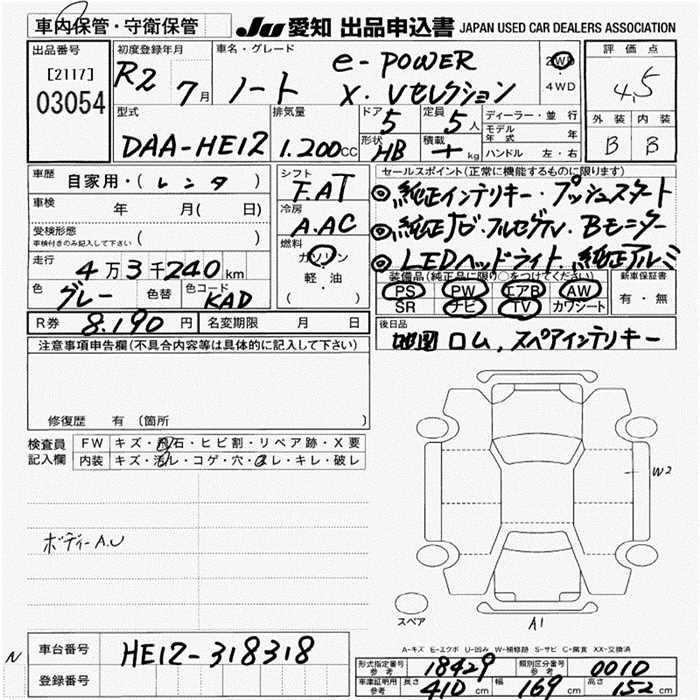 車内保管・守衛保管 JU 愛知 出品申込書 JAPAN USED CAR DEALERS ASSOCIATION
出品番号 初度登録年月 車名・グレード 評価点
[2117] R2 7月 ノート e-POWER 2WD
03054 X・Vセレクション 4WD 4.5
型式 排気量 ドア 5 定員 5人 ディーラー・並行 外装 内装
DAA-HE12 1.200cc 形状 HB 積載 + kg モデル年式 年 B B
ハンドル 左・右
車歴 自家用・(レンタ) シフト F.AT セールスポイント(正常に機能するものに限ります)
車検 年 月( 日) 冷房 A.AC ◎純正インテリキー・プッシュスタート
受検形態 ( ) 燃料 ◎純正ナビ・フルセグTV・Bモニター
車検付きのみ記入して下さい ガソリン ◎LEDヘッドライト、純正アルミ
走行 4万3千240km 軽・油 装備品(純正品に限り○をつけてください) 新車保証書
色 グレー 色替 色コード KAD ( ) PS PW エアB AW 有・無
SR ナビ TV カワシート
R券 8.190円 名変期限 月 日 後日品
注意事項申告欄(不具合内容等は具体的に記入して下さい) 地図ロム、スペアインテリキー
修復歴 有 (箇所 )
検査員 FW キズ・飛石・ヒビ割・リペア跡・X要
記入欄 内装 キズ・汚レ・コゲ・穴・スレ・キレ・破レ
W2
ボディーA.U
スペア A1
A-キズ E-エクボ U-凹み W-補修跡 S-サビ C-腐食 XX-交換済
N 車台番号 HE12-318318
登録番号
形式指定番号 参考 18429 類別区分番号 参考 0010
車庫証明用 参考 長さ 410cm 幅 169cm 高さ 152cm